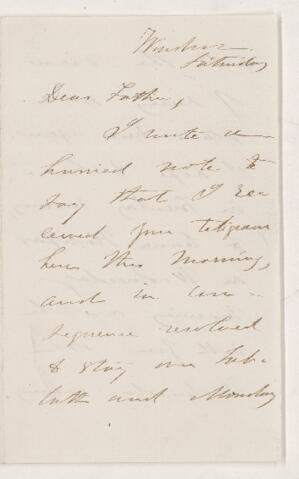 Windsor
Saturday
Dear Father,
I write a
hurried note to
say that I re-
ceived your telegram
here this morning,
and in con-
sequence resolved
to stay over Sab-
bath and Monday